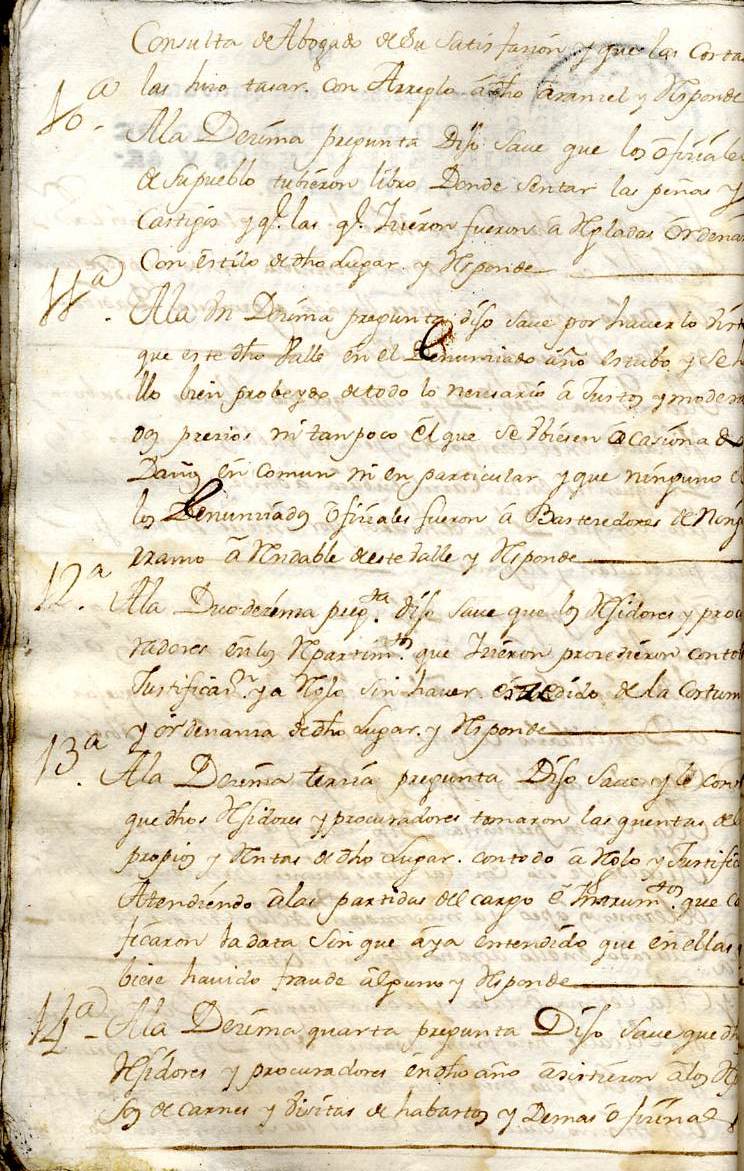 Consulta de Abogado de su satisfasión y que las Corta
las hizo tasar. con Arreglo a dho aranzel y Rsponde
10ª A la Dezíma pregunta Díjo save que los ofizíales
de su pueblo tubíeron libro Donde sentar las penas y
Castigos y q.e las q.e Izíeron fueron a Rgladas ordenan
Con estílo de dho Lugar. y Rsponde
11ª A la Un Dezíma pregunta díjo save por haverlo vist
que este dho Valle en el Renunziado año estubo, y se h
llo bien probeydo de todo lo nezesarío a Justos y modera
dos prezíos ni tanpoco el que se ubíesen ocasiona do
Daños en comun ni en partícular y que ninguno d
los Denunziados ofizíales fueron a Bastezedores de Ning
rramo a Rndable de este Valle y Rsponde
12ª A la Duodezíma preg.ta díjo save que los Rjidores y procu
radores en los Rpartim.tos que Izíeron prozedíeron con to
Justificaz.n y a Rglo sin haver eszedído de la Costum
y ordenanza de dho Lugar. y Rsponde
13ª A la Dezíma terzía pregunta Díjo save y le const
que dhos Rjidores y procuradores tomaron las quentas de l
propios y Rntas de dho Lugar. con todo a Rglo y Justific
Atendíendo a las partídas del cargo e Instrum.tos que Ce
ficaron la data sin que aya entendído que en ellas u
biese havido fraude alguno y Rsponde
14ª A la Dezíma quarta pregunta Díjo save que dh
Rjidores y procuradores en dho año asistíeron a los Rp
sos de carnes y vísitas de habastos y Demas ofizinas